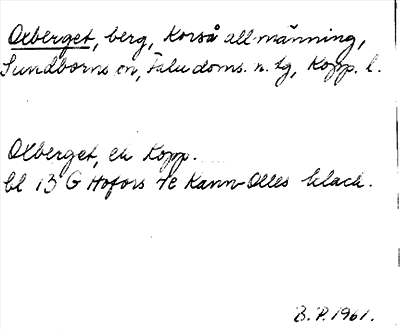 Oxberget, berg, Korså allmänning,
Sundborns sn, Falu doms. n. tg, Kopp. l.
Oxberget, ek Kopp.
bl 13 G Hofors 7e Kann-Olles klack.
B.P. 1961.